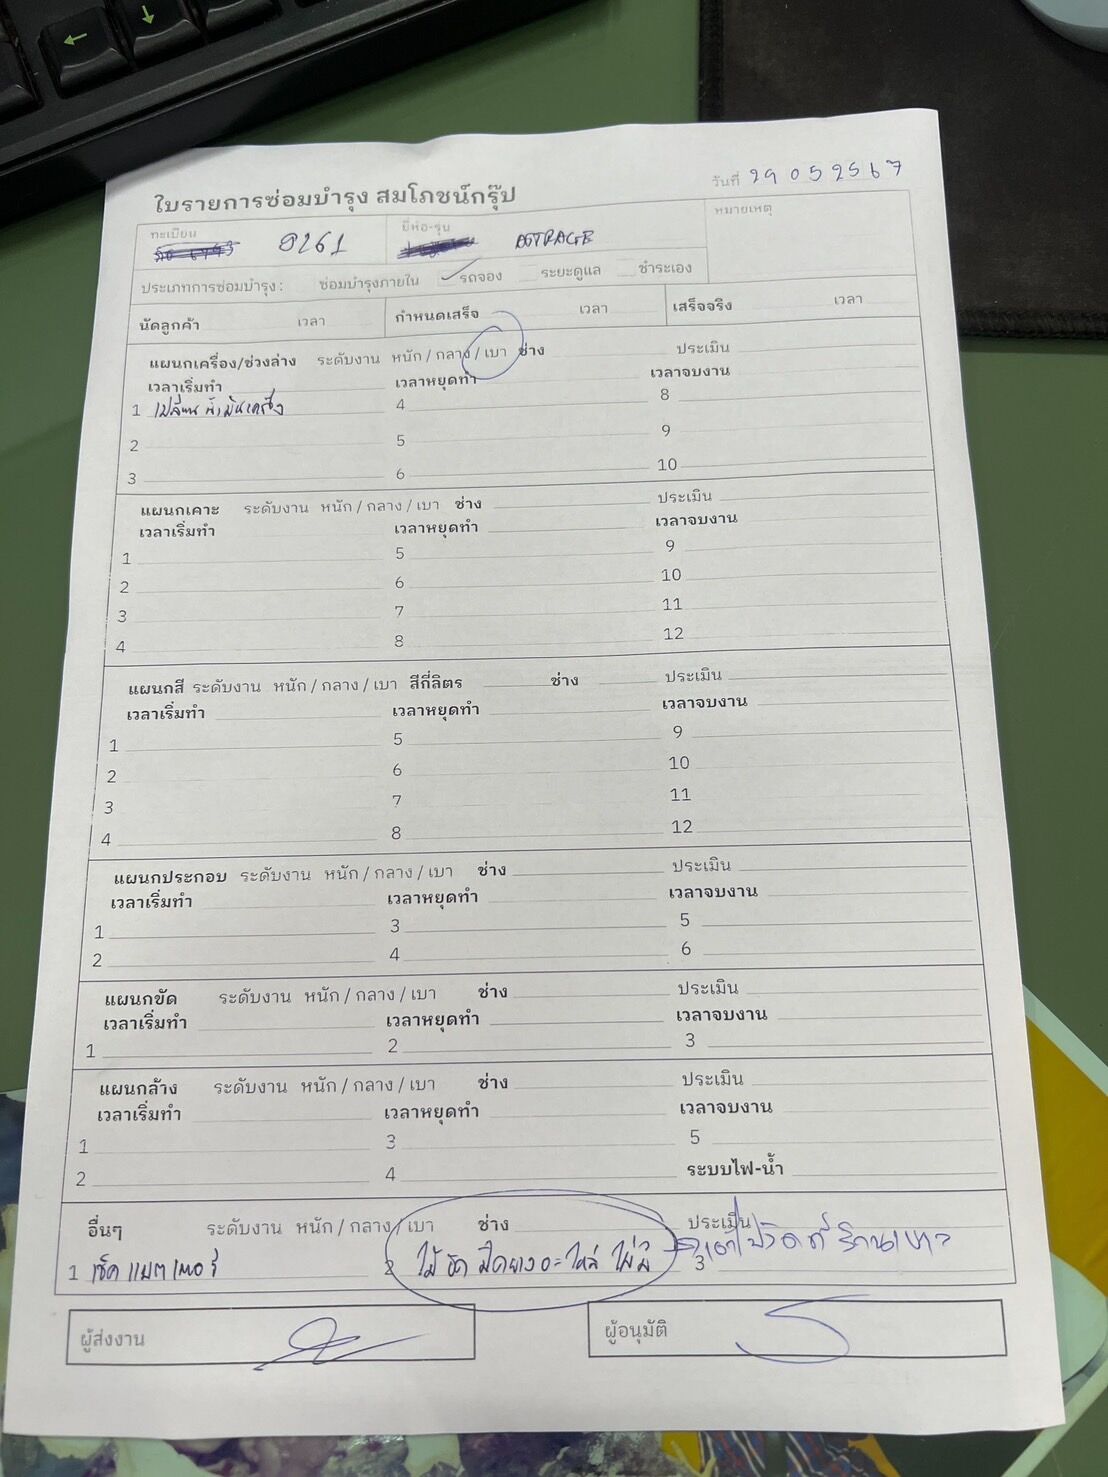 วันที่ 29 05 2567
ใบรายการซ่อมบำรุง สมโภชน์กรุ๊ป
ทะเบียน ยี่ห้อ-รุ่น หมายเหตุ
8261 ATTRAGE
ประเภทการซ่อมบำรุง : ซ่อมบำรุงภายใน รถจอง ระยะดูแล ชำระเอง
นัดลูกค้า เวลา กำหนดเสร็จ เวลา เสร็จจริง เวลา
แผนกเครื่อง/ช่วงล่าง ระดับงาน หนัก / กลาง / เบา ช่าง ประเมิน
เวลาเริ่มทำ เวลาหยุดทำ เวลาจบงาน
1 เปลี่ยนน้ำมันเครื่อง 4 8
2 5 9
3 6 10
แผนกเคาะ ระดับงาน หนัก / กลาง / เบา ช่าง ประเมิน
เวลาเริ่มทำ เวลาหยุดทำ เวลาจบงาน
1 5 9
2 6 10
3 7 11
4 8 12
แผนกสี ระดับงาน หนัก / กลาง / เบา สีกี่ลิตร ช่าง ประเมิน
เวลาเริ่มทำ เวลาหยุดทำ เวลาจบงาน
1 5 9
2 6 10
3 7 11
4 8 12
แผนกประกอบ ระดับงาน หนัก / กลาง / เบา ช่าง ประเมิน
เวลาเริ่มทำ เวลาหยุดทำ เวลาจบงาน
1 3 5
2 4 6
แผนกขัด ระดับงาน หนัก / กลาง / เบา ช่าง ประเมิน
เวลาเริ่มทำ เวลาหยุดทำ เวลาจบงาน
1 2 3
แผนกล้าง ระดับงาน หนัก / กลาง / เบา ช่าง ประเมิน
เวลาเริ่มทำ เวลาหยุดทำ เวลาจบงาน
1 3 5
2 4 ระบบไฟ-น้ำ
อื่นๆ ระดับงาน หนัก / กลาง / เบา ช่าง ประเมิน
1 เช็คแบตเตอรี่ 2 3
ผู้ส่งงาน ผู้อนุมัติ